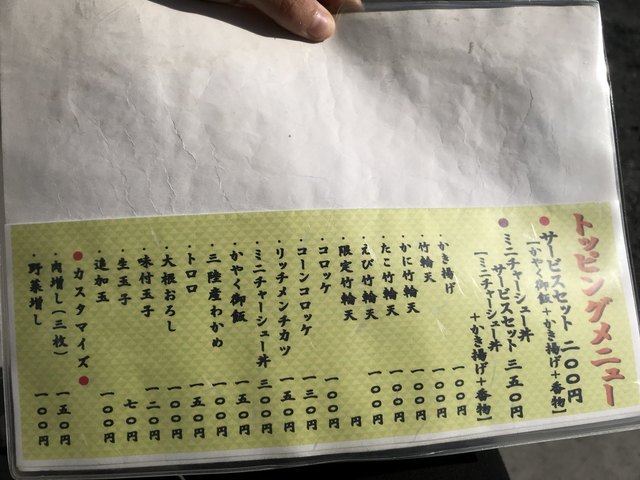 トッピングメニュー
● サービスセット 二〇〇円
[かやく御飯+かき揚げ+香物]
● ミニチャーシュー丼
サービスセット 三五〇円
[ミニチャーシュー丼
+かき揚げ+香物]
・かき揚げ 一〇〇円
・竹輪天 一〇〇円
・かに竹輪天 一〇〇円
・たこ竹輪天 一〇〇円
・えび竹輪天 一〇〇円
・限定竹輪天 円
・コロッケ 一〇〇円
・コーンコロッケ 一三〇円
・リッチメンチカツ 一五〇円
・ミニチャーシュー丼 三〇〇円
・かやく御飯 一五〇円
・三陸産わかめ 一〇〇円
・トロロ 一五〇円
・大根おろし 一〇〇円
・味付玉子 一二〇円
・生玉子 七〇円
・追加玉 一〇〇円
● カスタマイズ ●
・肉増し(三枚) 一五〇円
・野菜増し 一〇〇円